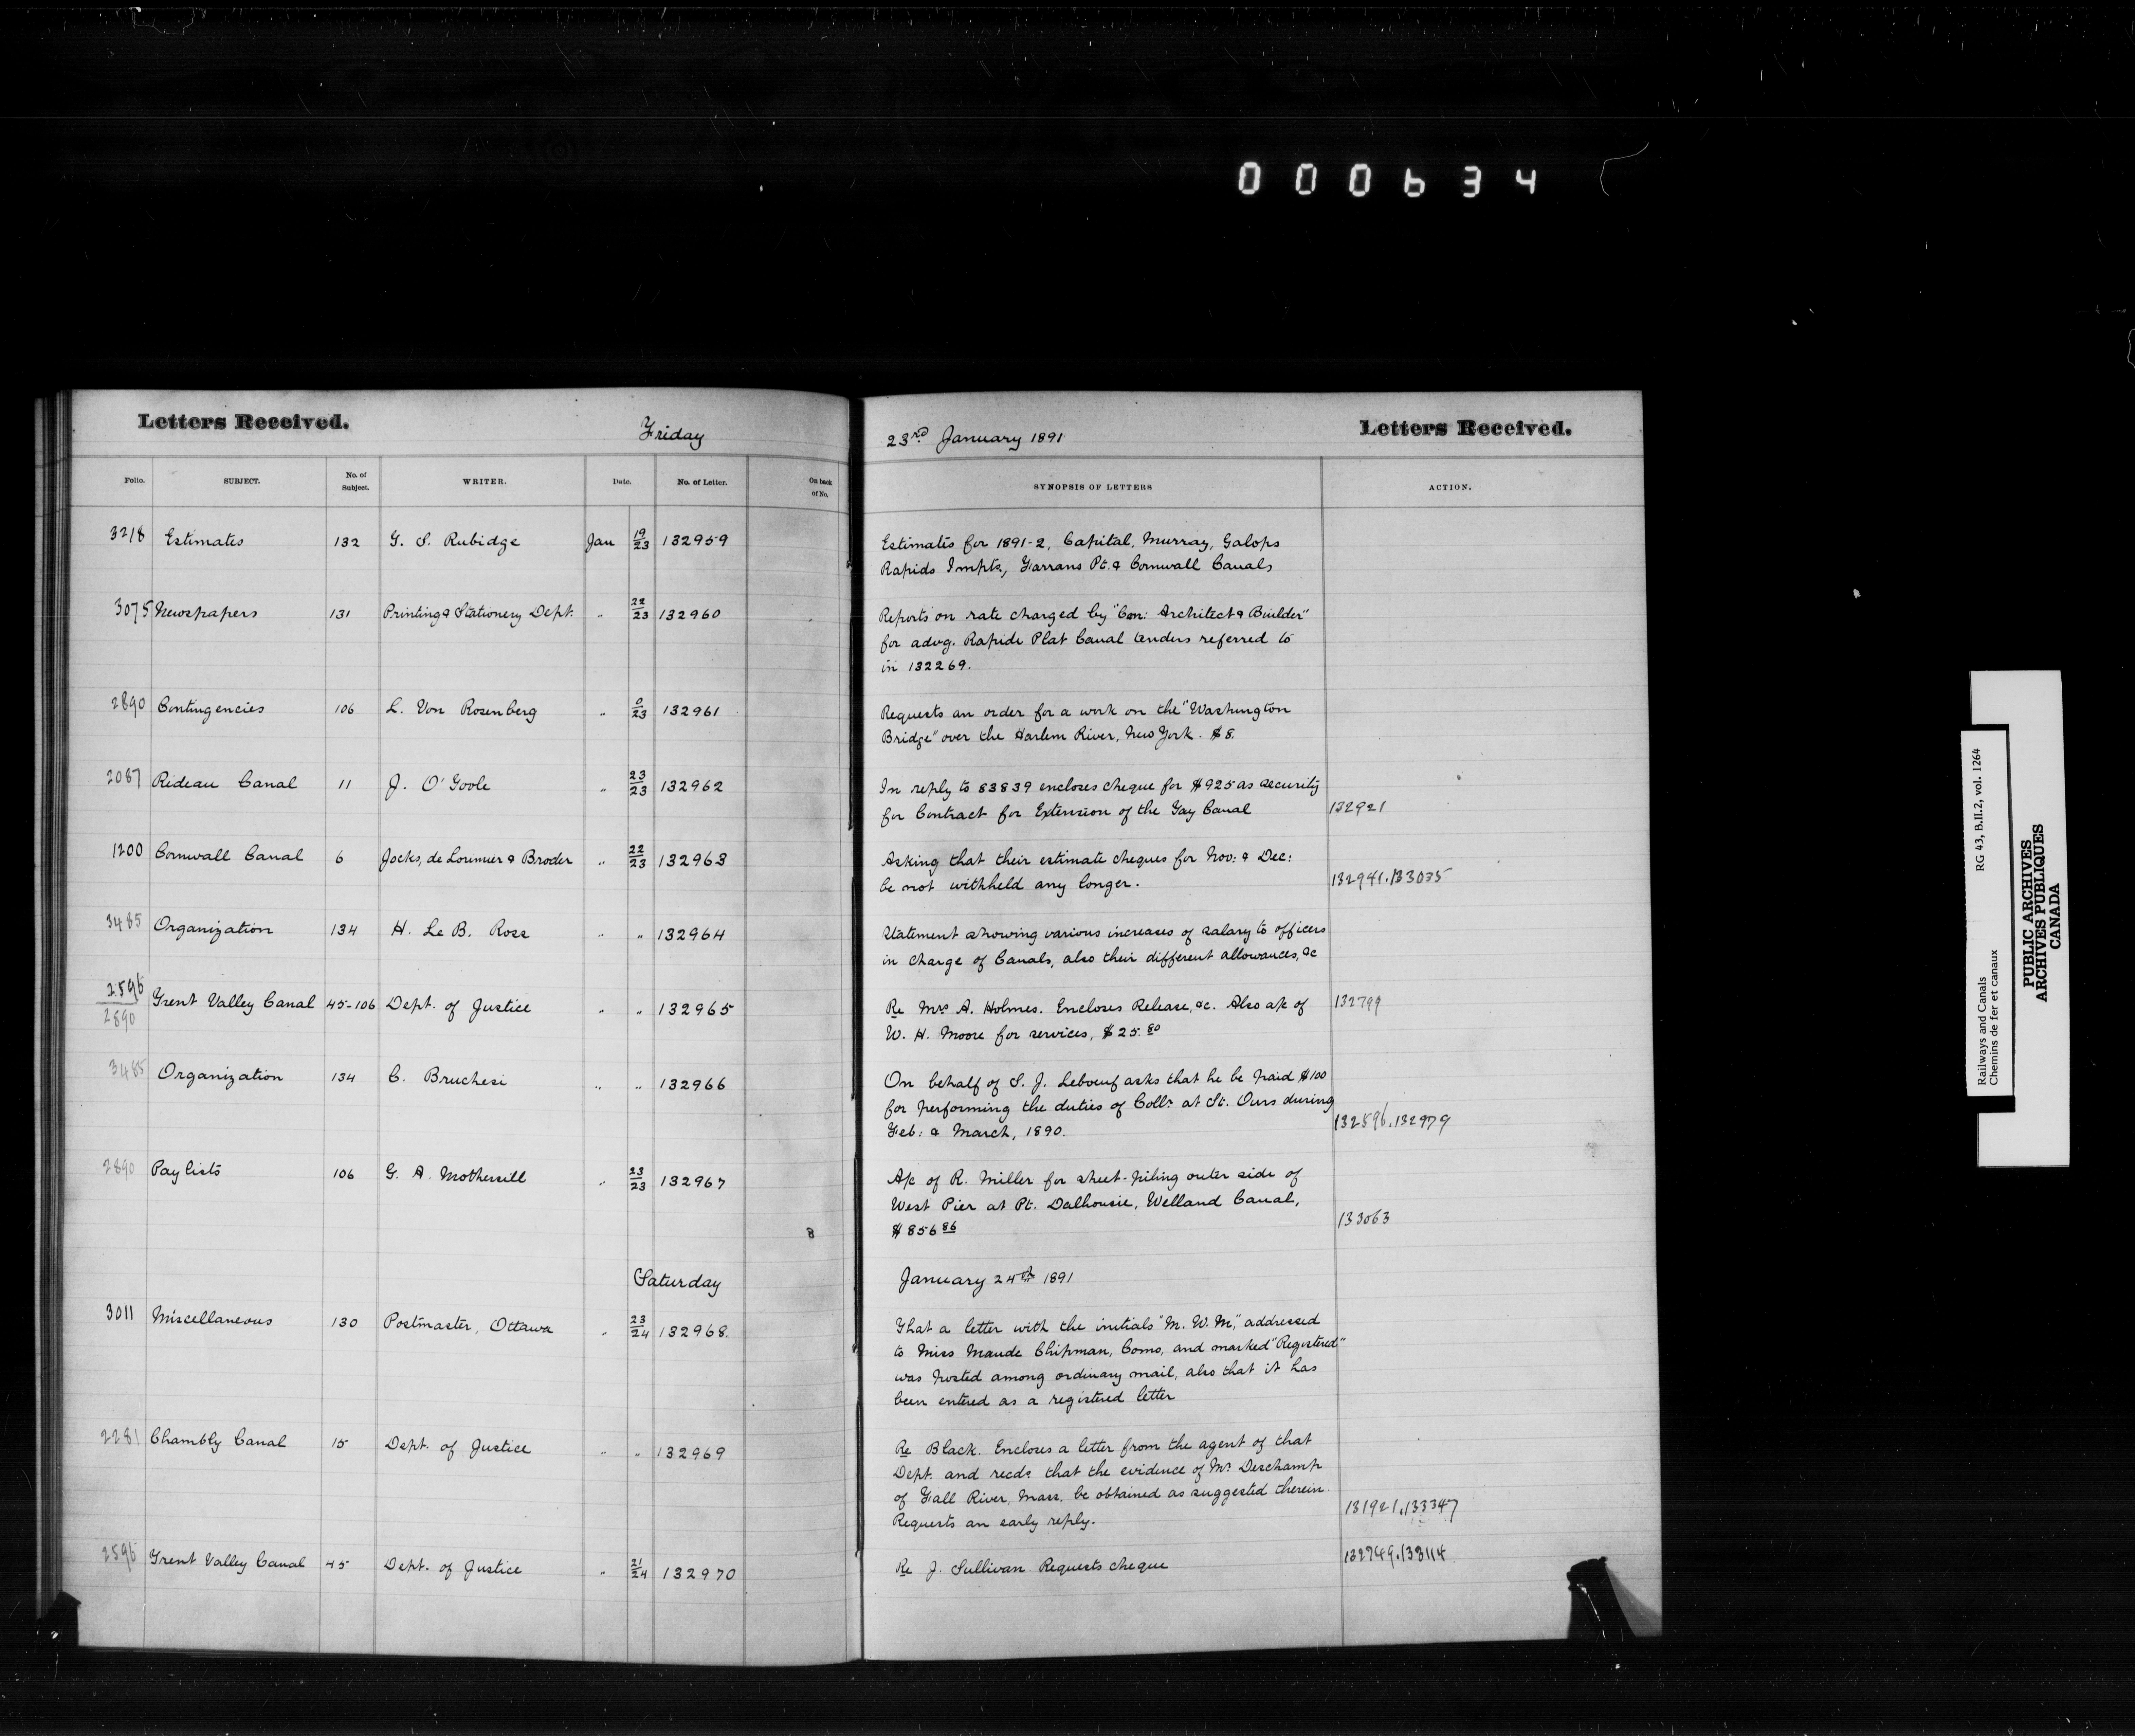 000634
Letters Received.
Friday
23rd January 1891
Letters Received.
Folio. SUBJECT. No. of Subject. WRITER. Date. No. of Letter. On back of No. SYNOPSIS OF LETTERS ACTION.
3218 Estimates 132 G. S. Rubidge Jan 19/23 132959
Estimates for 1891-2, Capital, Murray, Galops
Rapids Impts, Farrans Pt. & Cornwall Canals
3075 Newspapers 131 Printing & Stationery Dept. " 22/23 132960
Reports on rate charged by "Can: Architect & Builder"
for advg. Rapide Plat Canal tenders referred to
in 132269.
2890 Contingencies 106 L. Von Rosenberg " 0/23 132961
Requests an order for a work on the "Washington
Bridge" over the Harlem River, New York. $8.
2087 Rideau Canal 11 J. O'Toole " 23/23 132962
In reply to 83839 encloses cheque for $925 as security
for Contract for Extension of the Tay Canal 132921
1200 Cornwall Canal 6 Jocks, de Lorimier & Broder " 22/23 132963
Asking that their estimate cheques for Nov: & Dec:
be not withheld any longer. 132941.133035
3485 Organization 134 H. Le B. Ross " " 132964
Statement showing various increases of salary to officers
in charge of Canals, also their different allowances, &c
2596/2890 Trent Valley Canal 45-106 Dept. of Justice " " 132965
Re Mrs A. Holmes. Encloses Release, &c. Also a/c of 132799
W. H. Moore for services, $25.80
3485 Organization 134 C. Bruchesi " " 132966
On behalf of S. J. Leboeuf asks that he be paid $100
for performing the duties of Collr at St. Ours during
Feb: & March, 1890. 132596.132979
2890 Paylists 106 G. A. Mothersill " 23/23 132967
A/c of R. Miller for sheet-piling outer side of
West Pier at Pt. Dalhousie, Welland Canal,
$856 86 133063
8
Saturday
January 24th 1891
3011 Miscellaneous 130 Postmaster, Ottawa " 23/24 132968.
That a letter with the initials "M. W. M", addressed
to Miss Maude Chipman, Como, and marked "Registered"
was posted among ordinary mail, also that it has
been entered as a registered letter
2281 Chambly Canal 15 Dept. of Justice " " 132969
Re Black. Encloses a letter from the agent of that
Dept. and recds that the evidence of Mr Deschamp
of Fall River, Mass. be obtained as suggested therein.
Requests an early reply. 131921.133347
2596 Trent Valley Canal 45 Dept. of Justice " 21/24 132970
Re J. Sullivan. Requests cheque 132749.133114
Railways and Canals RG 43, B.II.2, vol. 1264
Chemins de fer et canaux
PUBLIC ARCHIVES
ARCHIVES PUBLIQUES
CANADA